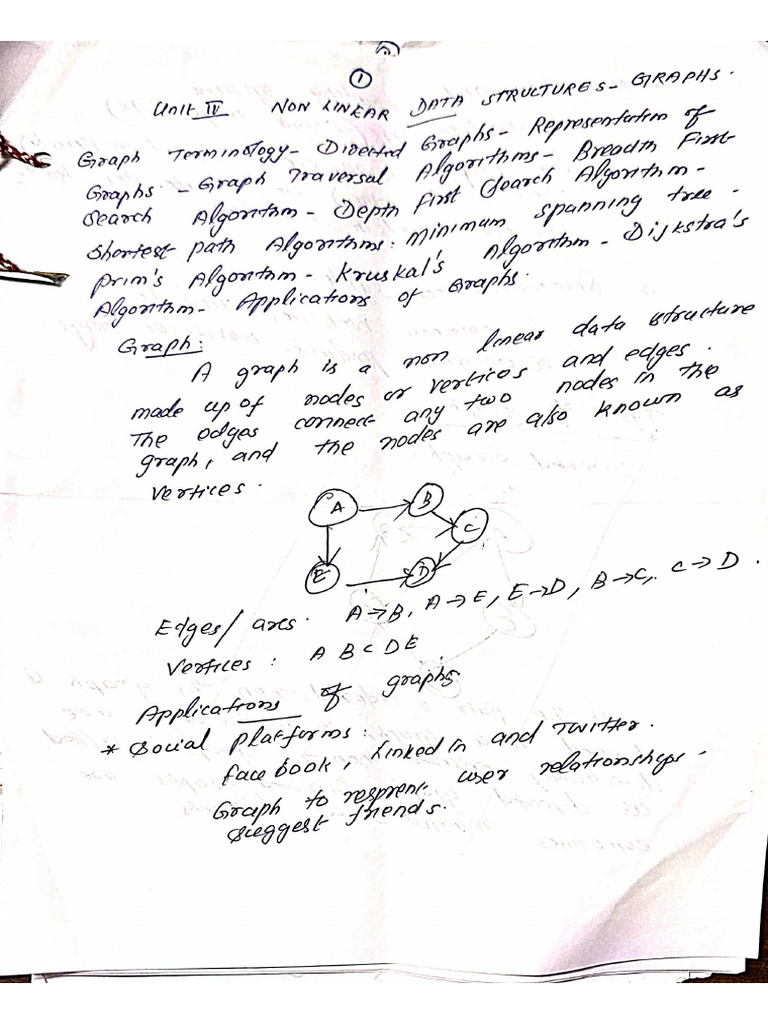 ①
Unit IV NON LINEAR DATA STRUCTURES - GRAPHS.
Graph Terminology - Directed Graphs - Representation of
Graphs - Graph Traversal Algorithms - Breadth First
Search Algorithm - Depth First Search Algorithm -
Shortest path Algorithms: Minimum spanning tree -
Prim's Algorithm - Kruskal's Algorithm - Dijkstra's
Algorithm - Applications of Graphs.
Graph:
A graph is a non linear data structure
made up of nodes or vertices and edges.
The edges connect any two nodes in the
graph, and the nodes are also known as
vertices.
A B
C
E D
Edges/arcs: A→B, A→E, E→D, B→C, C→D.
Vertices: A B C D E
Applications of graphs
* Social platforms:
facebook, Linked in and Twitter.
Graph to represent user relationships -
suggest friends.